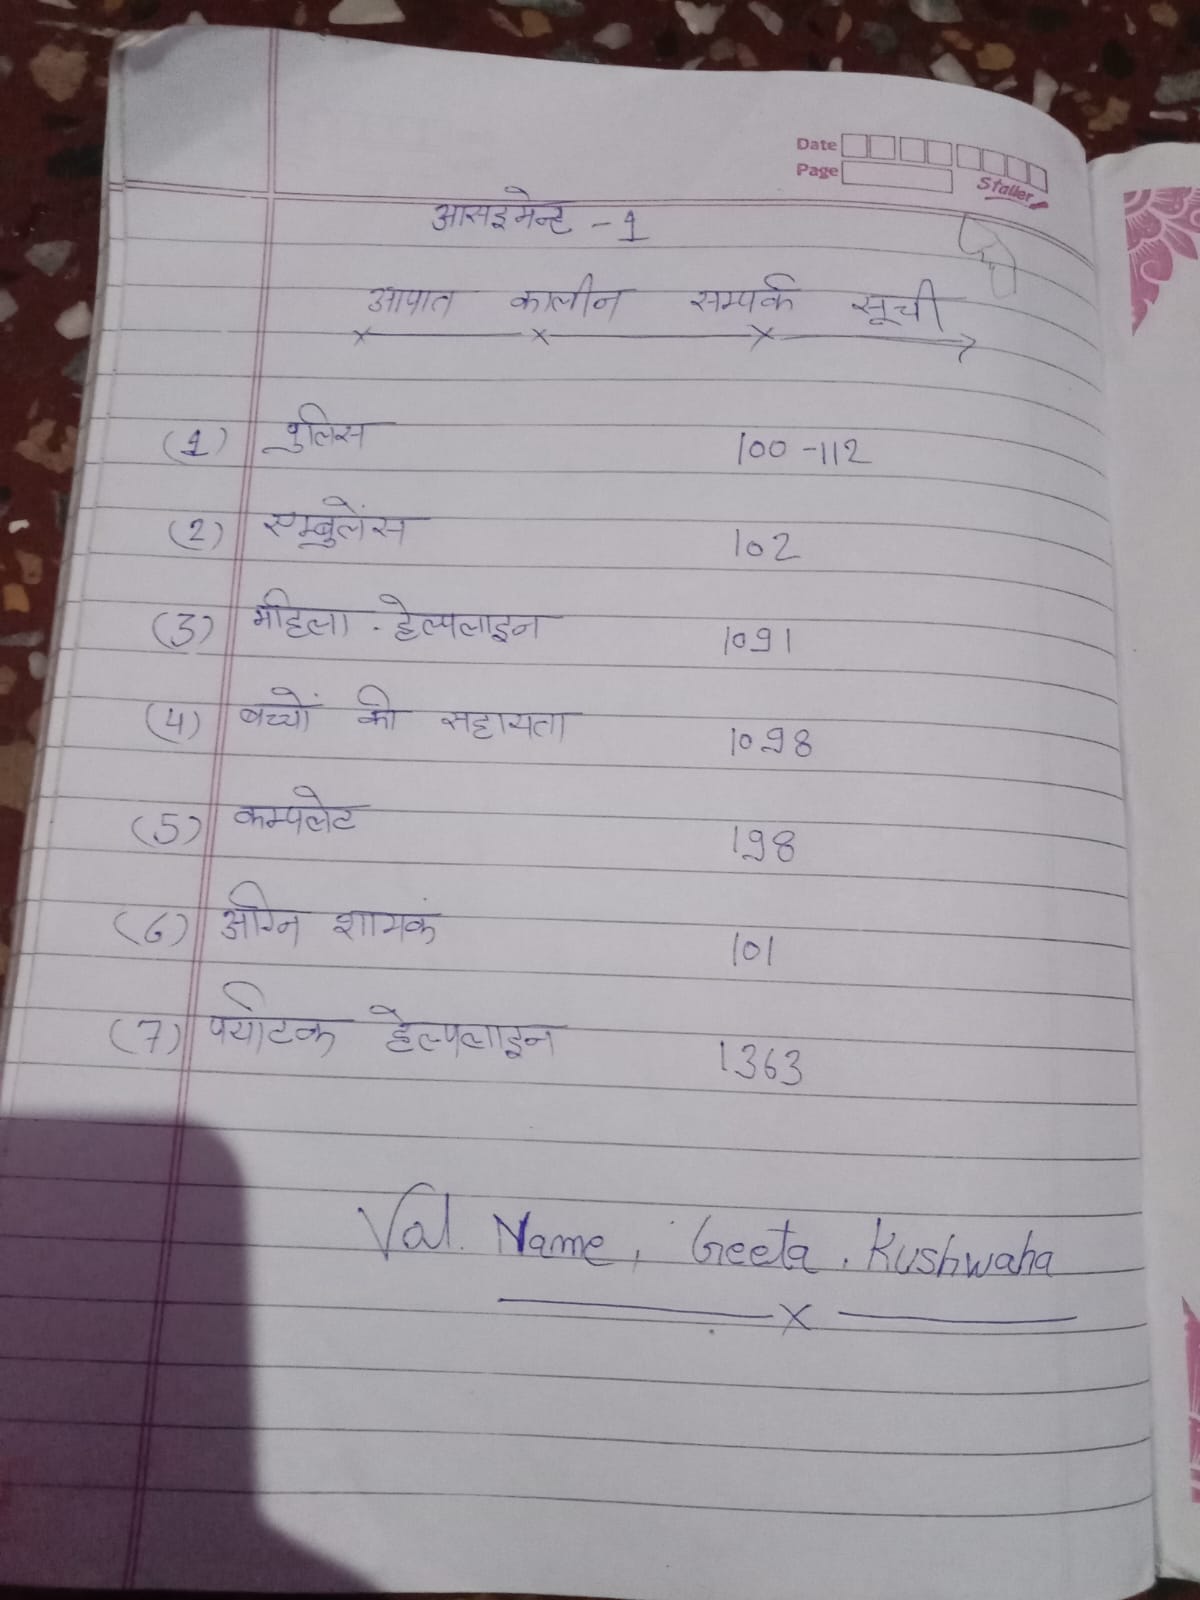 Date
Page
Staller
आसइमेन्ट - 1
आपात कालीन सम्पर्क सूची
(1) पुलिस 100 -112
(2) एम्बुलेंस 102
(3) महिला - हेल्पलाइन 1091
(4) बच्चों की सहायता 1098
(5) कम्पलेट 198
(6) अग्नि शामकं 101
(7) पर्याटक हेल्पलाइन 1363
Vol. Name, Geeta. Kushwaha